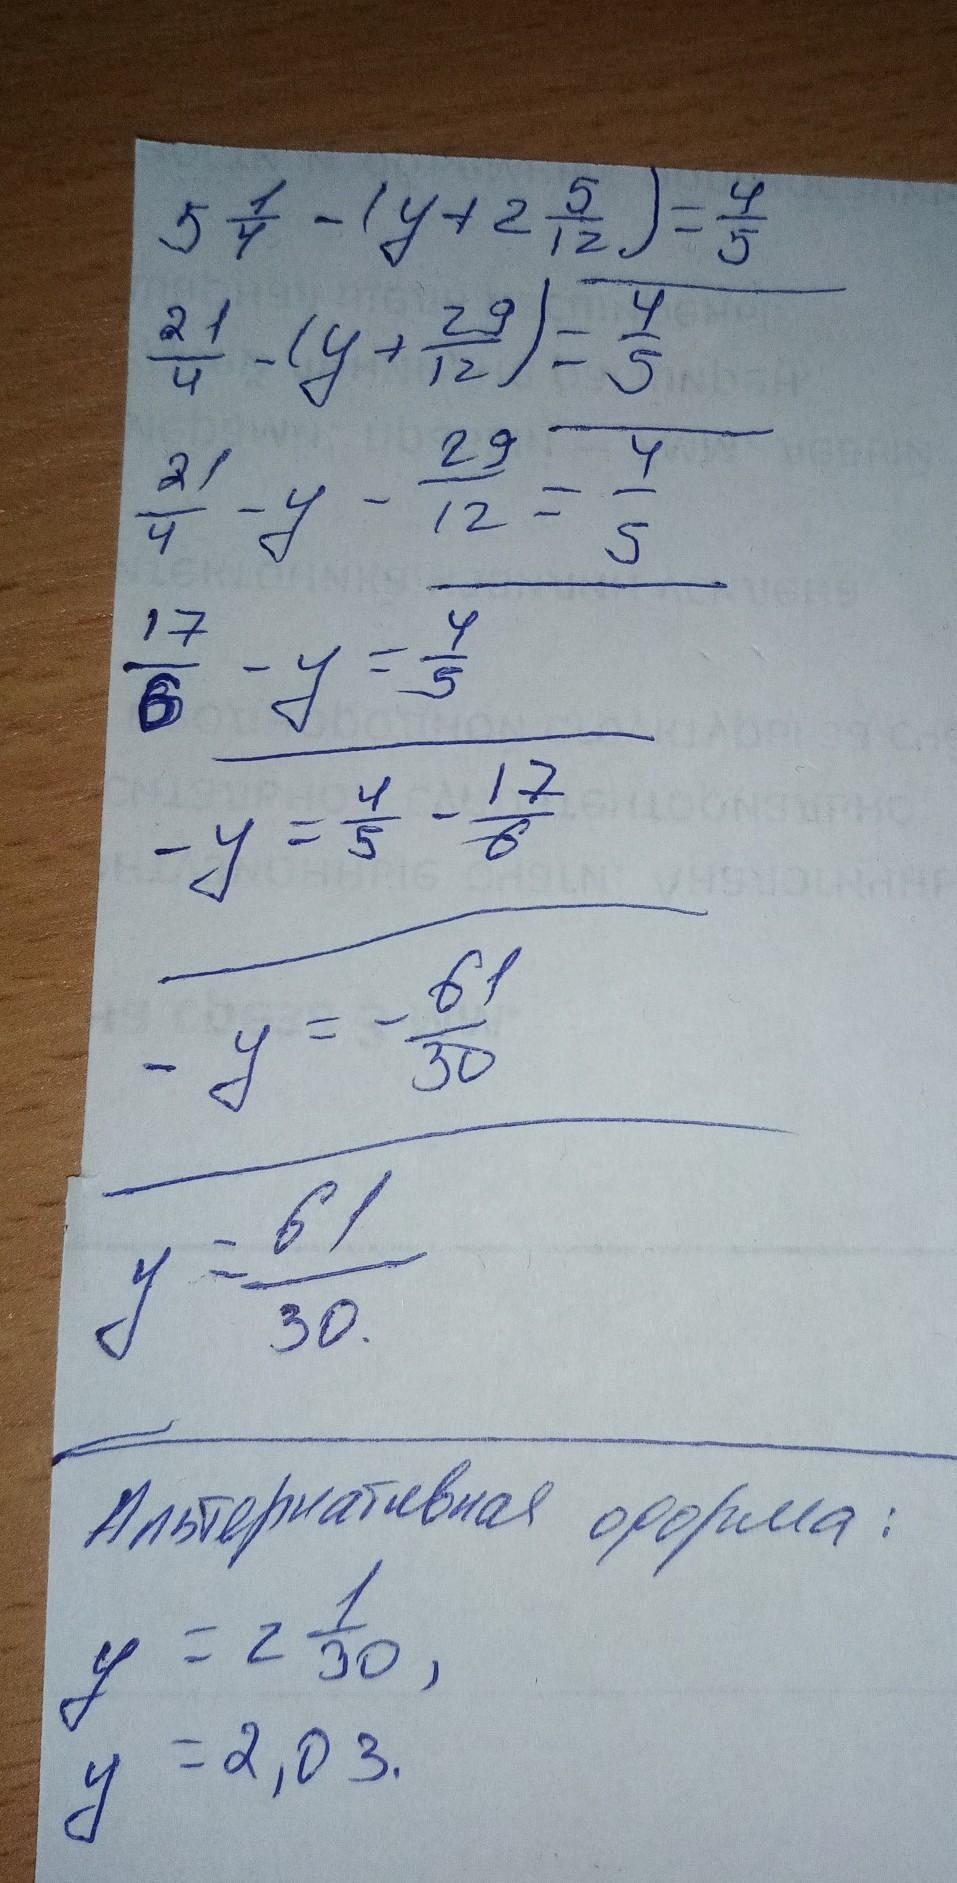 5 1/4 - (y + 2 5/12) = 4/5
21/4 - (y + 29/12) = 4/5
21/4 - y - 29/12 = 4/5
17/6 - y = 4/5
- y = 4/5 - 17/6
- y = - 61/30
y = 61/30.
Альтернативная форма:
y = 2 1/30,
y = 2,03.